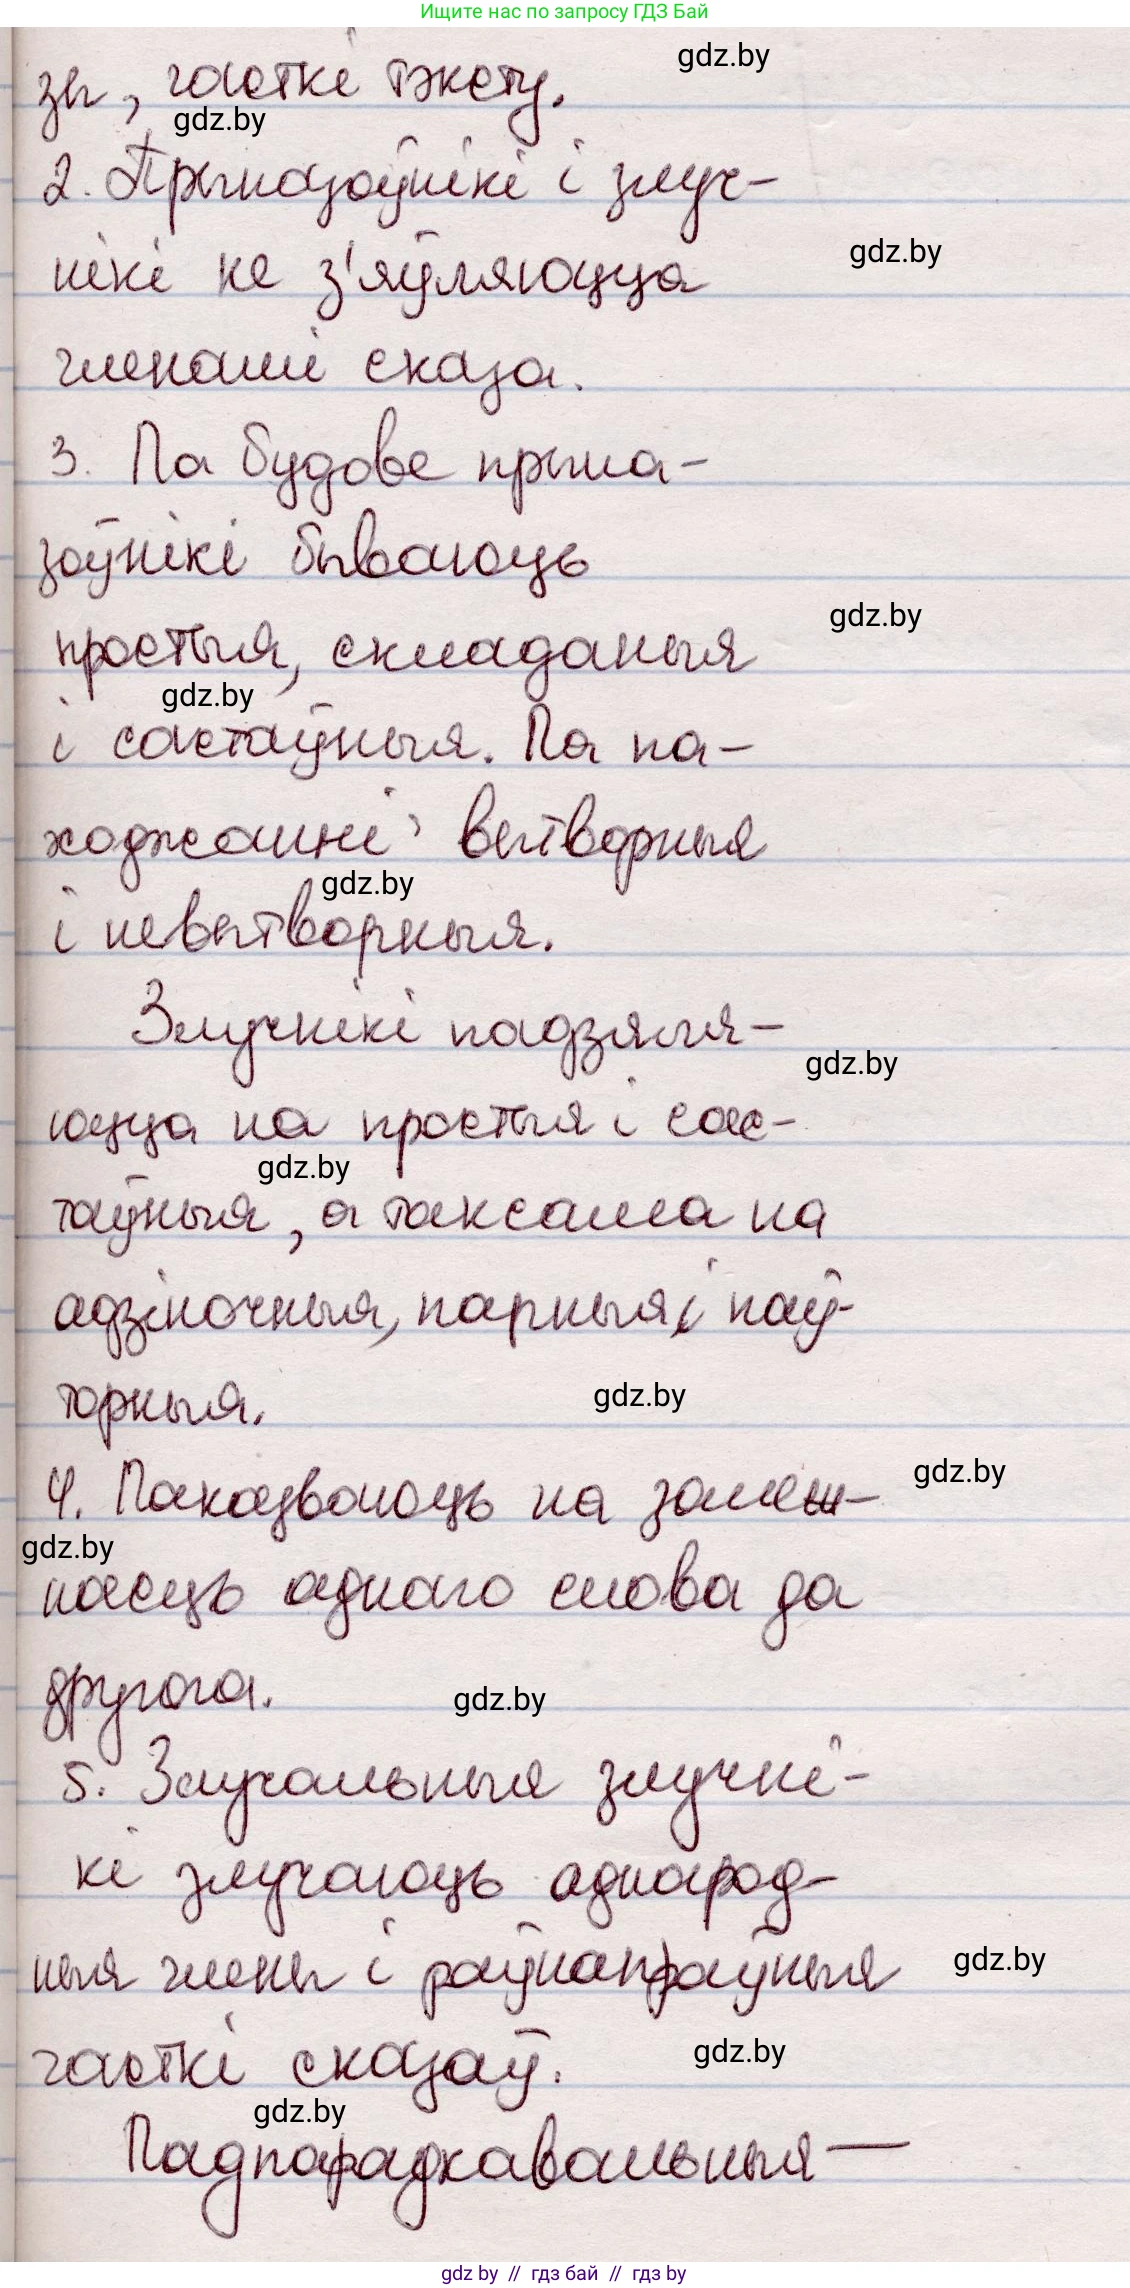 Ищите нас по запросу ГДЗ Бай
gdz.by
зы, часткі тэксту.
gdz.by
2. Прыназоўнікі і злуч-
gdz.by
нікі не з'яўляюцца
членамі сказа.
3. Па будове прына-
зоўнікі бываюць
gdz.by
простыя, складаныя
gdz.by
і састаўныя. Па па-
ходжанні, вытворныя
gdz.by
і невытворныя.
Злучнікі падзяля-
gdz.by
юцца на простыя і сас-
gdz.by
таўныя, а таксама на
адзіночныя, парныя і паў-
gdz.by
торныя.
gdz.by
4. Паказваюць на залеж-
gdz.by
насць аднаго слова да
другога.
gdz.by
5. Злучальныя злучні-
кі злучаюць аднарод-
ныя члены і раўнапраўныя
gdz.by
часткі сказаў.
gdz.by
gdz.by
Падпарадкавальныя —
gdz.by // гдз бай // гдз by